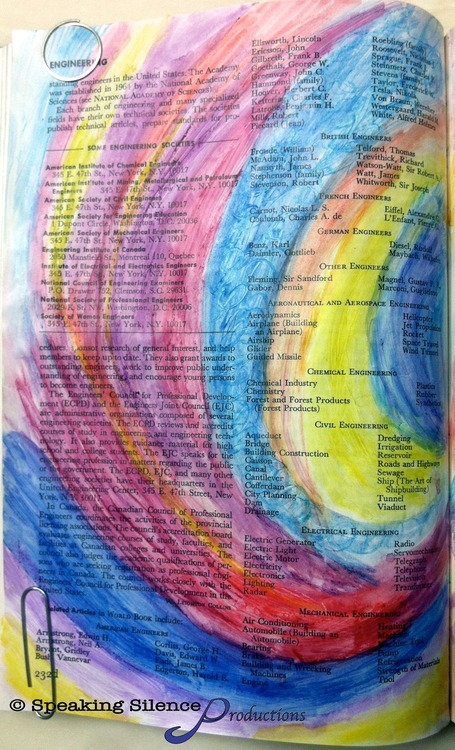 ENGINEERING
standing engineers in the United States. The Academy
was established in 1964 by the National Academy of
Sciences (see NATIONAL ACADEMY OF SCIENCES).
Each branch of engineering and many specialized
fields have their own technical societies. The societies
publish technical articles, prepare standards for
SOME ENGINEERING SOCIETIES
American Institute of Chemical Engineers
345 E. 47th St., New York, N.Y. 10017
American Institute of Mining, Metallurgical and Petroleum
Engineers 345 E. 47th St., New York, N.Y. 10017
American Society of Civil Engineers
345 E. 47th St., New York, N.Y. 10017
American Society for Engineering Education
1 Dupont Circle, Washington, D.C. 20036
American Society of Mechanical Engineers
345 E. 47th St., New York, N.Y. 10017
Engineering Institute of Canada
Mansfield St., Montreal 110, Quebec
Institute of Electrical and Electronics Engineers
345 E. 47th St., New York, N.Y. 10017
National Council of Engineering Examiners
P.O. Drawer 752, Clemson, S.C. 29631
National Society of Professional Engineers
2029 K St. N.W., Washington, D.C. 20006
Society of Women Engineers
345 E. 47th St., New York, N.Y. 10017
conduct research of general interest, and help
members keep up to date. They also grant awards to
outstanding engineers, work to improve public under-
standing of engineering, and encourage young persons
to become engineers.
The Engineers' Council for Professional Develop-
ment (ECPD) and the Engineers Joint Council (EJC)
are administrative organizations composed of several
engineering societies. The ECPD reviews and accredits
courses of study in engineering and engineering tech-
nology. It also provides guidance material for high
school and college students. The EJC speaks for the
profession in matters regarding the public
or the government. The ECPD, EJC, and many other
engineering societies have headquarters in the
United Engineering Center, 345 E. 47th Street, New
York, N.Y.
In Canada, the Canadian Council of Professional
Engineers coordinates the activities of the provincial
licensing associations. The council's accreditation board
evaluates engineering courses, faculties,
colleges and universities. The
council also judges the qualifications of
sons who are seeking as professional engi-
neers in Canada. The council works closely with the
Council for Professional Development in the
United States.
Related Articles in WORLD BOOK include:
AMERICAN ENGINEERS
Armstrong, Edwin H.
Armstrong, Neil A.
Bryant, Gridley
Bush, Vannevar
Cortiss, George H.
Davis, Edward W.
Eads, James B.
Edgerton, Harold E.
232d
Ellsworth, Lincoln
Ericsson, John
Gilbreth, Frank B.
Goethals, George W.
Greenway, John C.
Hammond (family)
Hoover, Herbert C.
Mills, Robert
Piccard (Jean)
Roebling (family)
Roosevelt,
Sprague, Frank
Steinmetz, Charles
Stevens
Taylor, Frederick
Tesla, Nikola
Von Braun, Wernher
Westinghouse, George
White, Alfred
BRITISH ENGINEERS
Brindle (William)
McAdam, John L.
Nasmyth, James
Stephenson (family)
Stevenson, Robert
Telford, Thomas
Trevithick, Richard
Watson-Watt, Sir Robert
Watt, James
Whitworth, Sir Joseph
FRENCH ENGINEERS
Carnot, Nicolas L. S.
Coulomb, Charles A. de
Eiffel, Alexandre G.
L'Enfant, Pierre
GERMAN ENGINEERS
Benz, Karl
Daimler, Gottlieb
Diesel, Rudolf
Maybach, Wilhelm
OTHER ENGINEERS
Fleming, Sir Sandford
Gabor, Dennis
Magnus,
Marconi, Guglielmo
AERONAUTICAL AND AEROSPACE ENGINEERING
Aerodynamics
Airplane (Building
an Airplane)
Airship
Glider
Guided Missile
Helicopter
Jet Propulsion
Rocket
Space Travel
Wind Tunnel
CHEMICAL ENGINEERING
Chemical Industry
Chemistry
Forest and Forest Products
(Forest Products)
Plastics
Rubber
Synthetics
CIVIL ENGINEERING
Aqueduct
Bridge
Building Construction
Caisson
Canal
Cantilever
Cofferdam
City Planning
Dam
Drainage
Dredging
Irrigation
Reservoir
Roads and Highways
Sewage
Ship (The Art of
Shipbuilding)
Tunnel
Viaduct
ELECTRICAL ENGINEERING
Electric Generator
Electric Light
Electric Motor
Electricity
Electronics
Lighting
Radar
Radio
Servomechanism
Telegraph
Telephone
Television
Transformer
MECHANICAL ENGINEERING
Air Conditioning
Automobile (Building an
Automobile)
Bearing
Building and Wrecking
Machines
Engine
Heating
Machine
Pump
Refrigeration
Strength of Materials
Tool
© Speaking Silence Productions